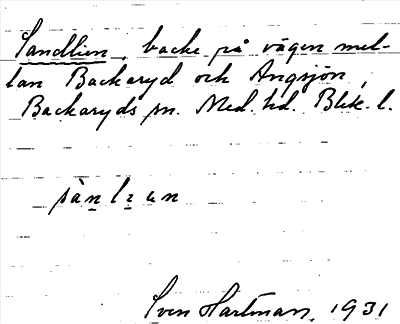 Sandlien, backe på vägen mel-
lan Backaryd och Angsjön,
Backaryds sn. Med. hd. Blek. l.
sàn lɩ un
Sven Hartman, 1931